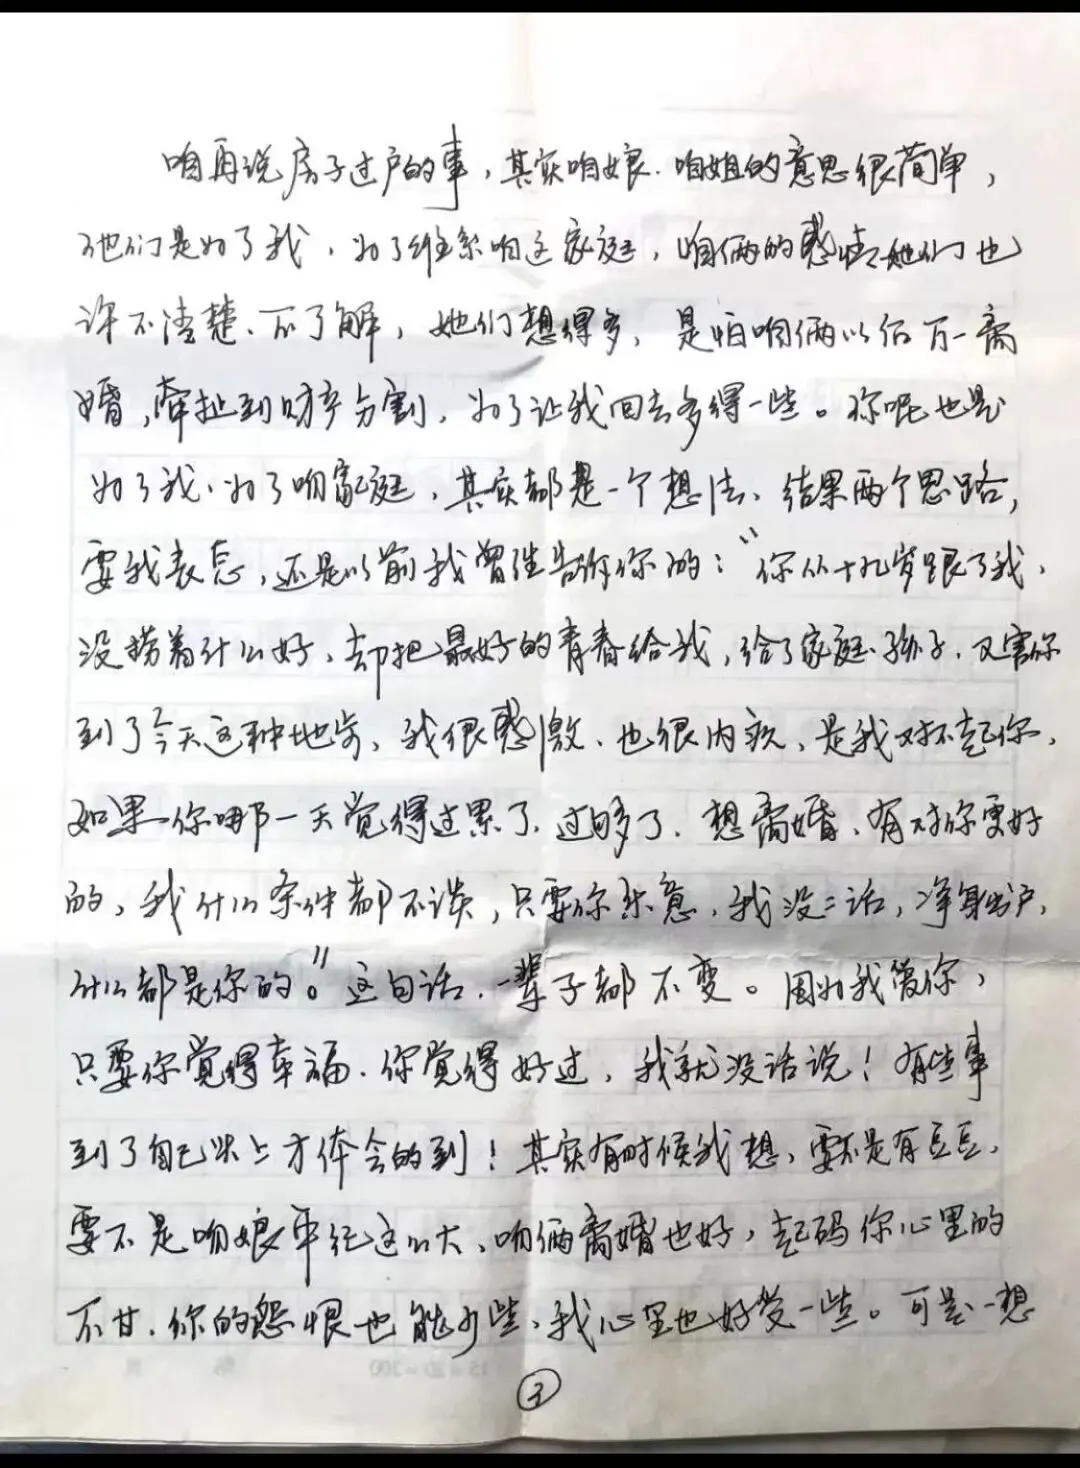 咱再说房子过户的事，其实咱娘、咱姐的意思很简单，
他们是为了我，为了维系咱这家庭，咱俩的感情她们也
许不清楚、不了解，她们想得多，是怕咱俩以后万一离
婚，牵扯到财产分割，为了让我回去多得一些。你呢也是
为了我、为了咱家庭，其实都是一个想法、结果两个思路，
要我表态，还是以前我曾经告诉你的：“你从十九岁跟了我，
没捞着什么好，却把最好的青春给我，给了家庭、孩子，又害你
到了今天这种地步，我很感激、也很内疚，是我对不起你，
如果你哪一天觉得过累了、过够了、想离婚、有对你更好
的，我什么条件都不谈，只要你乐意，我没二话，净身出户，
什么都是你的。”这句话，一辈子都不变。因为我爱你，
只要你觉得幸福、你觉得好过，我就没话说！有些事
到了自己头上才体会的到！其实有时候我想，要不是有豆豆，
要不是咱娘年纪这么大、咱俩离婚也好，起码你心里的
不甘、你的怨恨也能少些、我心里也好受一些。可是一想
3
15×20=300